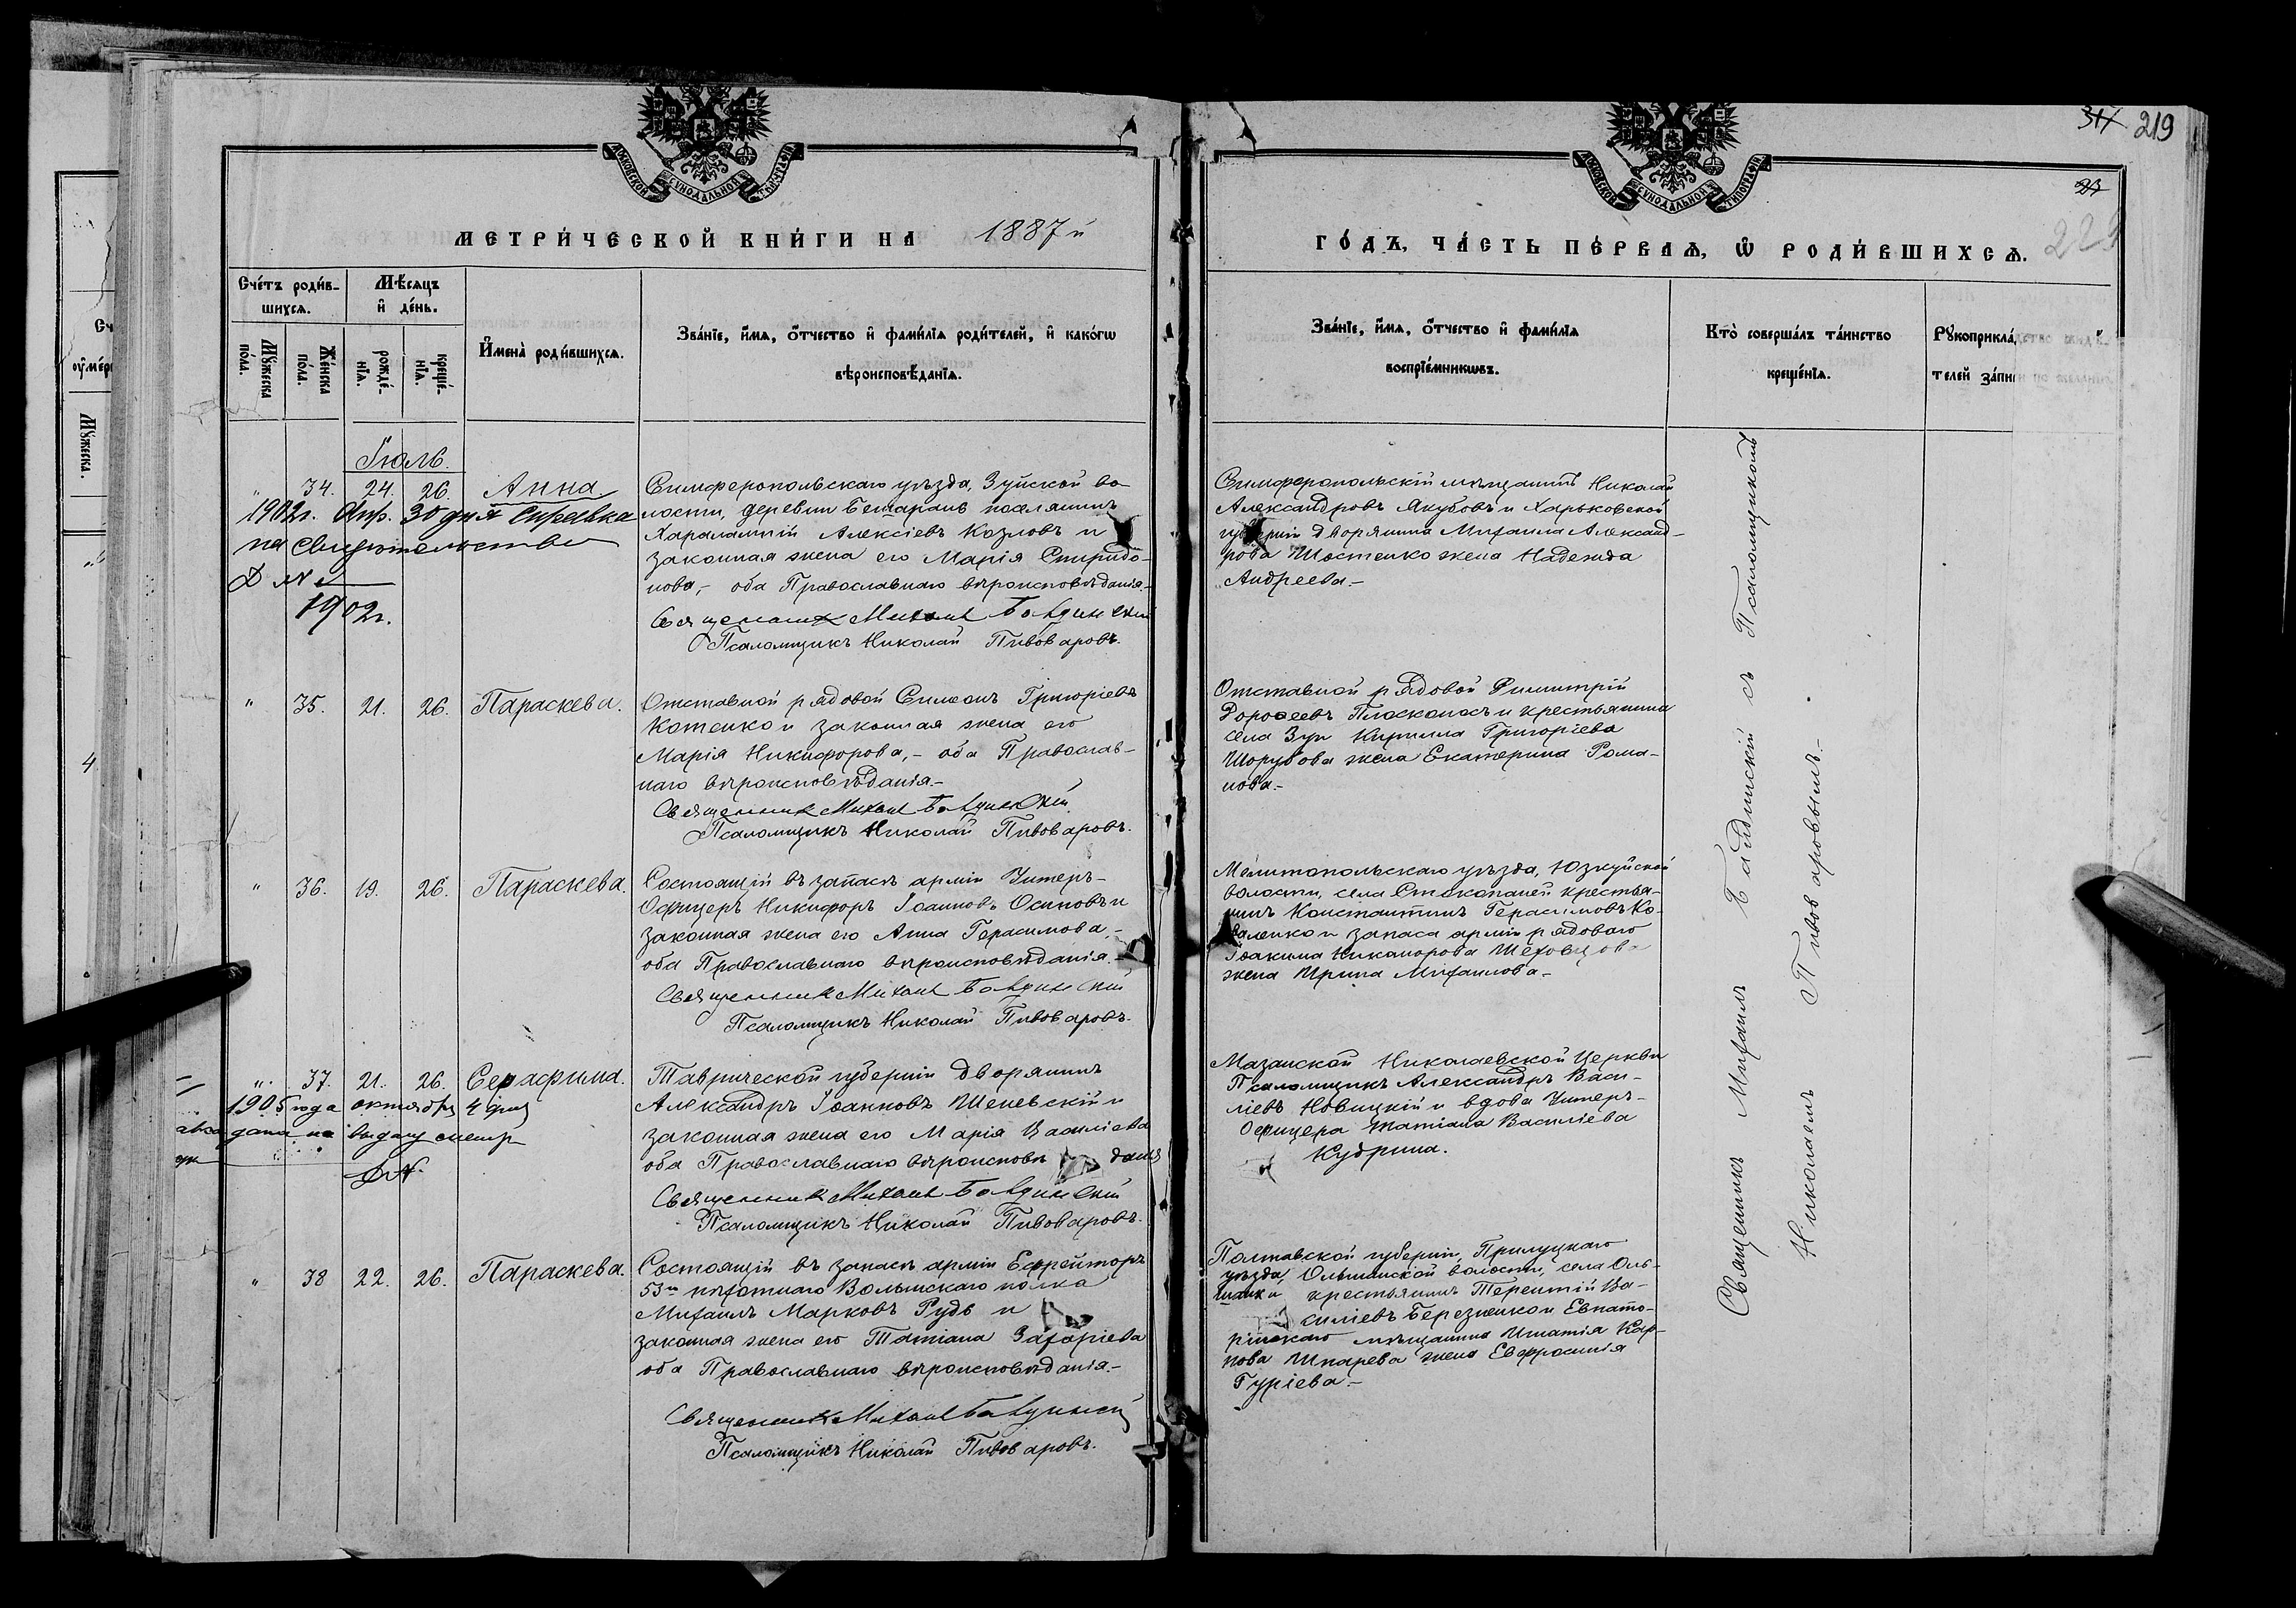 317 219
23
223
МОСКОВСКОЙ СѴНОДАЛЬНОЙ ТИПОГРАФІИ
МОСКОВСКОЙ СѴНОДАЛЬНОЙ ТИПОГРАФІИ
МЕТРИ́ЧЕСКОЙ КНИ́ГИ НА 1887й
ГО́ДЪ, ЧА́СТЬ ПЕ́РВАѦ, Ѡ҆ РОДИ́ВШИХСѦ.
Сче́тъ роди́в-
шихсѧ.
Мѣ́сѧцъ
и҆ де́нь.
Мꙋ́жеска
по́ла.
Же́нска
по́ла.
рожде́-
нїѧ.
креще́-
нїѧ.
И҆мена̀ роди́вшихсѧ.
Зва́нїе, и҆́мѧ, ѻ҆́тчество и҆ фами́лїѧ роди́телей, и҆ како́гѡ
вѣроисповѣ́данїѧ.
Зва́нїе, и҆́мѧ, ѻ҆́тчество и҆ фами́лїѧ
воспрїе́мникѡвъ.
Кто̀ соверша́лъ та́инство
креще́нїѧ.
Рꙋкоприкла́
телей за́пи
Іюль.
" 34. 24. 26. Анна
1902г. Апр. 30 дня справка
на свидетельство
№
1902г.
Симферопольскаго уѣзда, Зуйской во-
лости, деревни Бешарань поселянинъ
Харалампій Алексіевъ Козловъ и
законная жена его Марія Спиридо-
нова,- оба Православнаго вѣроисповѣданія.-
Священникъ Михаилъ Бадинскій
Псаломщикъ Николай Пивоваровъ.
Симферопольскій мѣщанинъ Николай
Александровъ Якубовъ и Харьковской
губерніи дворянина Михаила Александ-
рова Шостенко жена Надежда
Андреева.-
" 35. 21. 26. Параскева.
Отставной рядовой Симеонъ Григоріевъ
Котенко и законная жена его
Марія Никифорова,- оба Православ-
наго вѣроисповѣданія.-
Священникъ Михаилъ Бадинскій
Псаломщикъ Николай Пивоваровъ.
Отставной рядовой Димитрій
Дороѳеевъ Плоконосъ и крестьянина
села Зуи Кирилла Григоріева
Шорубова жена Екатерина Рома-
нова.-
" 36. 19. 26. Параскева.
Состоящій въ запасѣ арміи Унтеръ-
Офицеръ Никифоръ Іоанновъ Осиповъ и
законная жена его Анна Герасимова,-
оба Православнаго вѣроисповѣданія.-
Священникъ Михаилъ Бадинскій
Псаломщикъ Николай Пивоваровъ.
Мелитопольскаго уѣзда, Юзкуйской
волости, села Стокопаней крестья-
нинъ Константинъ Герасимовъ Ко-
валенко и запаса арміи рядоваго
Іоакима Никанорова Шеховцова
жена Ирина Михаилова-
" 37. 21. 26. Серафима.
1905 года октября 4 дня
дана на выдачу метр
Таврической губерніи дворянинъ
Александръ Іоанновъ Шеневскій и
законная жена его Марія Василіева
оба Православнаго вѣроисповѣданія
Священникъ Михаилъ Бадинскій
Псаломщикъ Николай Пивоваровъ.
Мазанской Николаевской Церкви
Псаломщикъ Александръ Васи-
ліевъ Новицкій и вдова Унтеръ-
Офицера Татіана Василіева
Кудрина.
" 38 22. 26. Параскева.
Состоящій въ запасѣ арміи Ефрейторъ
53го пѣхотнаго Волынскаго полка
Михаилъ Марковъ Рудь и
законная жена его Татіана Захаріева
оба Православнаго вѣроисповѣданія.-
Священникъ Михаилъ Бадинскій
Псаломщикъ Николай Пивоваровъ.
Полтавской губерніи, Прилуцкаго
уѣзда, Ольшанской волости, села Оль-
шанки крестьянинъ Терентій Ва-
силіевъ Березненко и Евпато-
рійскаго мѣщанина Игнатія Кар-
пова Шкарева жена Евфросинія
Гуріева.-
Священникъ Михаилъ Бадинскій съ Псаломщикомъ
Николаемъ Пивоваровымъ.-